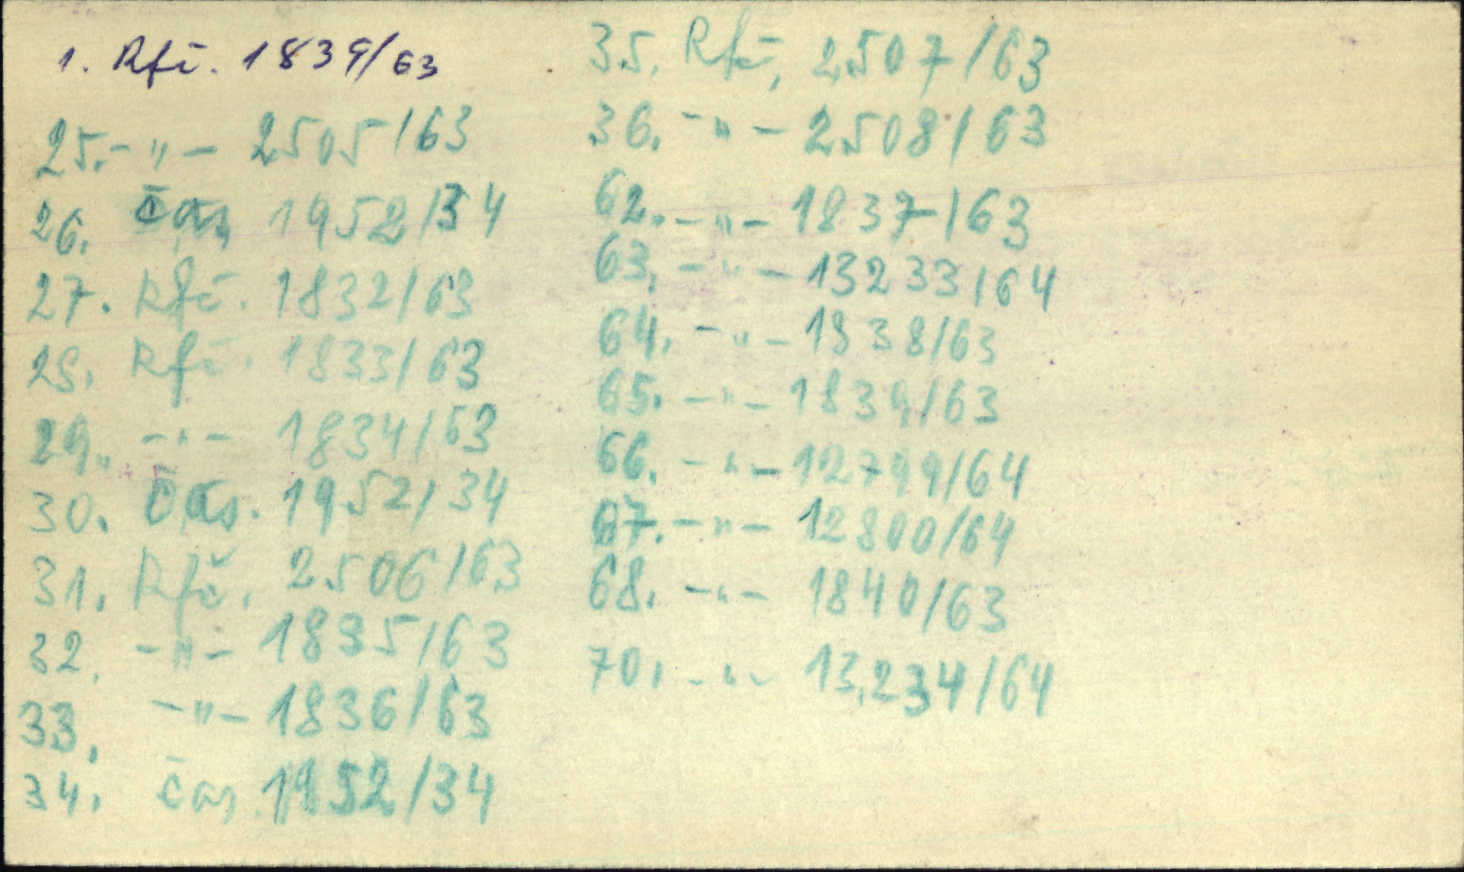 1. Rfč. 1839/63
25. -"- 2505/63
26. čas. 1952/34
27. Rfč. 1832/63
28. Rfč. 1833/63
29. -"- 1834/63
30. čas. 1952/34
31. Rfč. 2506/63
32. -"- 1835/63
33. -"- 1836/63
34. čas. 1952/34
35. Rfč. 2507/63
36. -"- 2508/63
62. -"- 1837/63
63. -"- 13233/64
64. -"- 1838/63
65. -"- 1839/63
66. -"- 12799/64
67. -"- 12800/64
68. -"- 1840/63
70. -"- 13,234/64